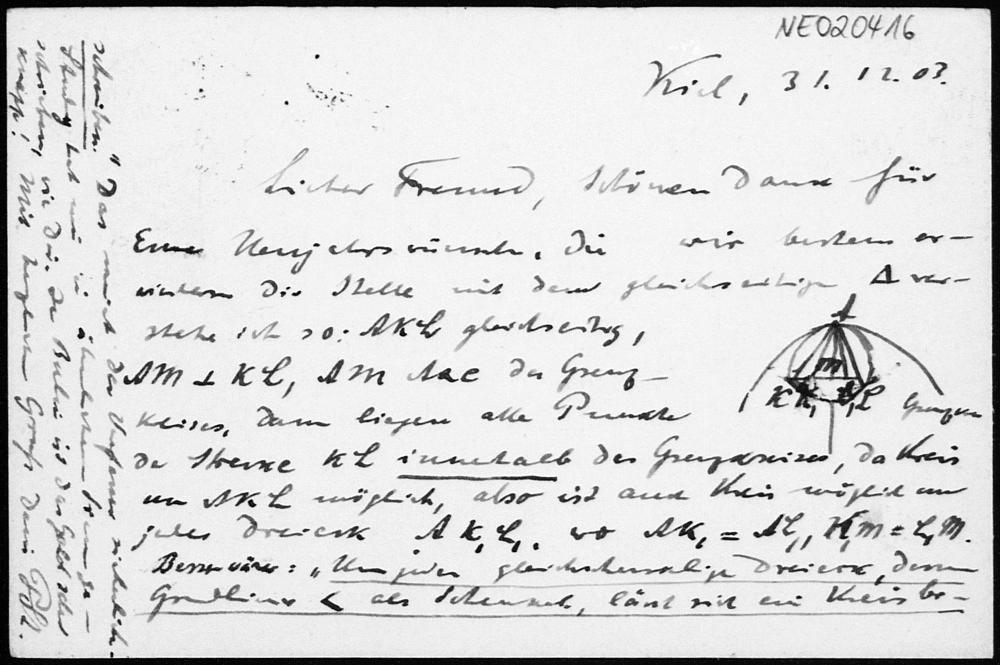 NE020416
Kiel, 31. 12. 03.
Lieber Freund, schönen Dank für
Eure Neujahrswünsche, die wir bestens er-
widern. Die Stelle mit dem gleichseitigen Δ ver-
stehe ich so: AKL gleichseitig,
AM ⊥ KL, AM Axe des Grenz-
kreises, dann liegen alle Punkte
der Strecke KL innerhalb des Grenzkreises, da Kreis
um AKL möglich, also ist auch Kreis möglich um
jedes Dreieck AK₁L₁, wo AK₁ = AL₁, K₁M = L₁M.
Besser wäre: „Um jedes gleichschenklige Dreieck, dessen
Grundlinie < als Schenkel, lässt sich ein Kreis be-
schreiben." Das meint der Verfasser sicherlich.
Study hat mir in
schrieben, wie Du. In Berlin ist das Geld sehr
knapp! Mit herzlichem Gruß Dein
A
M
K K₁ L₁ L